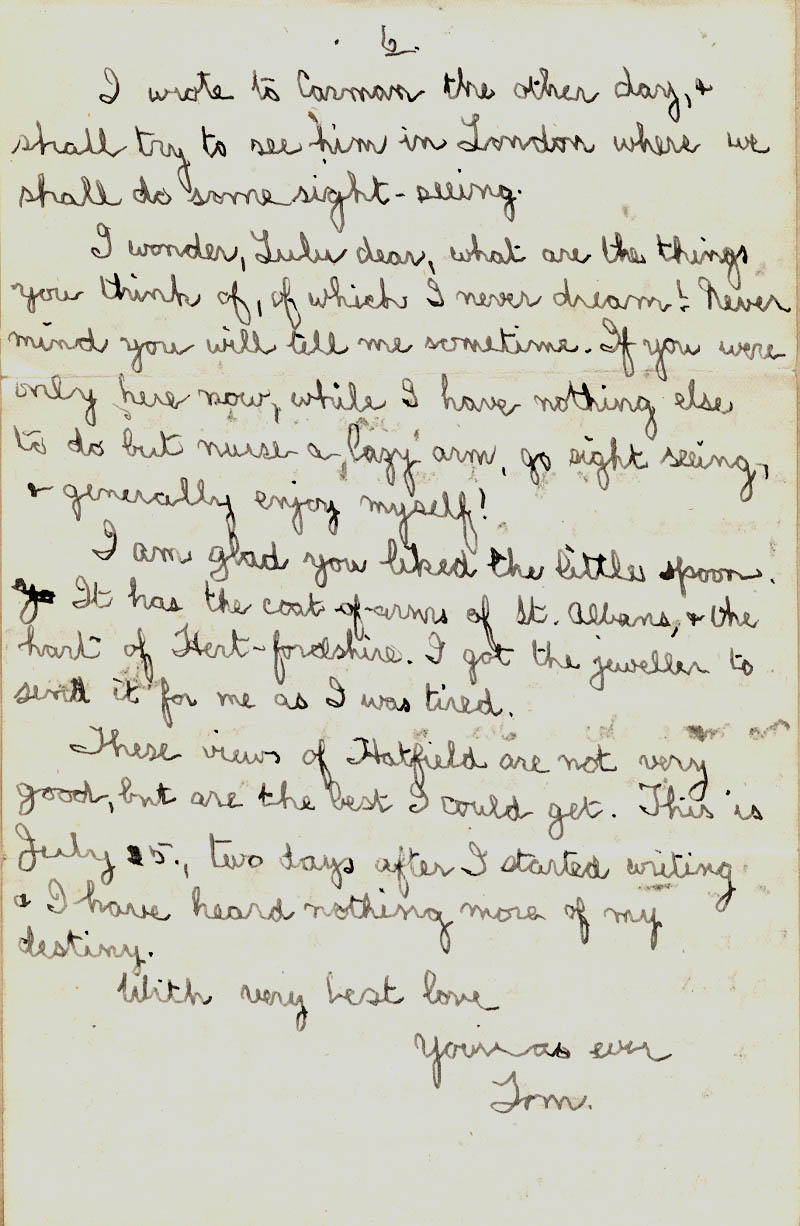 6.
I wrote to Carman the other day, &
shall try to see him in London where we
shall do some sight-seeing.
I wonder, Lulu dear, what are the things
you think of, of which I never dream! Never
mind you will tell me sometime. If you were
only here now, while I have nothing else
to do but nurse a lazy arm, go sight seeing,
& generally enjoy myself!
I am glad you liked the little spoon.
It has the coat-of-arms of St. Albans, & the
hart of Hert-fordshire. I got the jeweller to
send it for me as I was tired.
These views of Hatfield are not very
good, but are the best I could get. This is
July 25., two days after I started writing
& I have heard nothing more of my
destiny.
With very best love
Yours as ever
Tom.